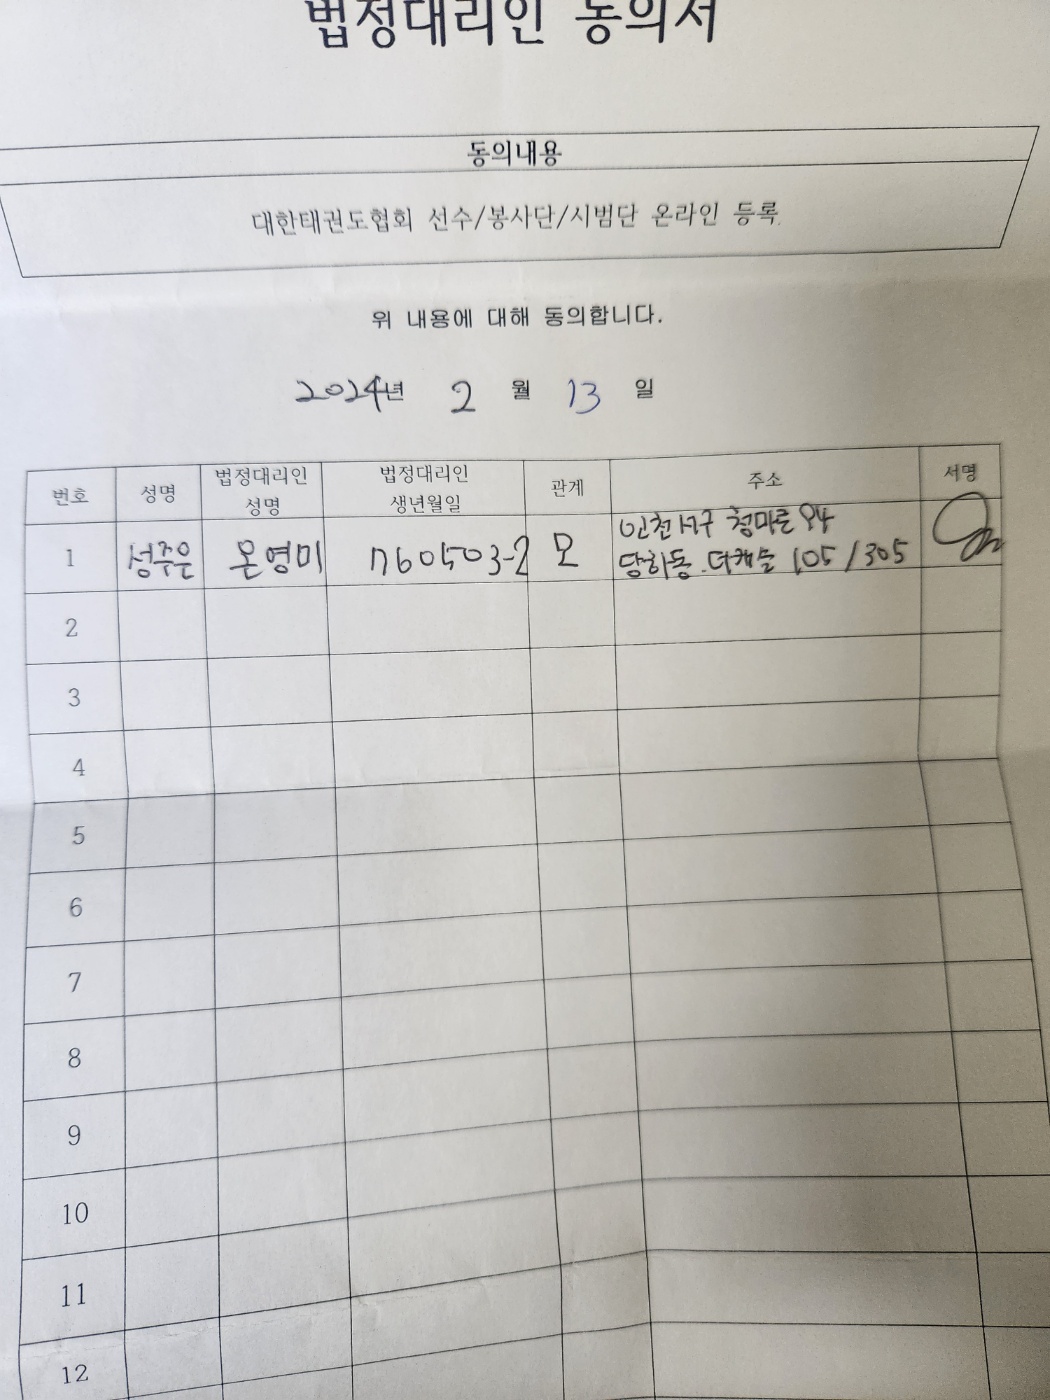 법정대리인 동의서
동의내용
대한태권도협회 선수/봉사단/시범단 온라인 등록
위 내용에 대해 동의합니다.
2024년 2 월 13 일
번호 성명 법정대리인 성명 법정대리인 생년월일 관계 주소 서명
1 성주은 온영미 760503-2 모 인천 서구 청마로 94
당하동 더캐슬 105/305
2
3
4
5
6
7
8
9
10
11
12